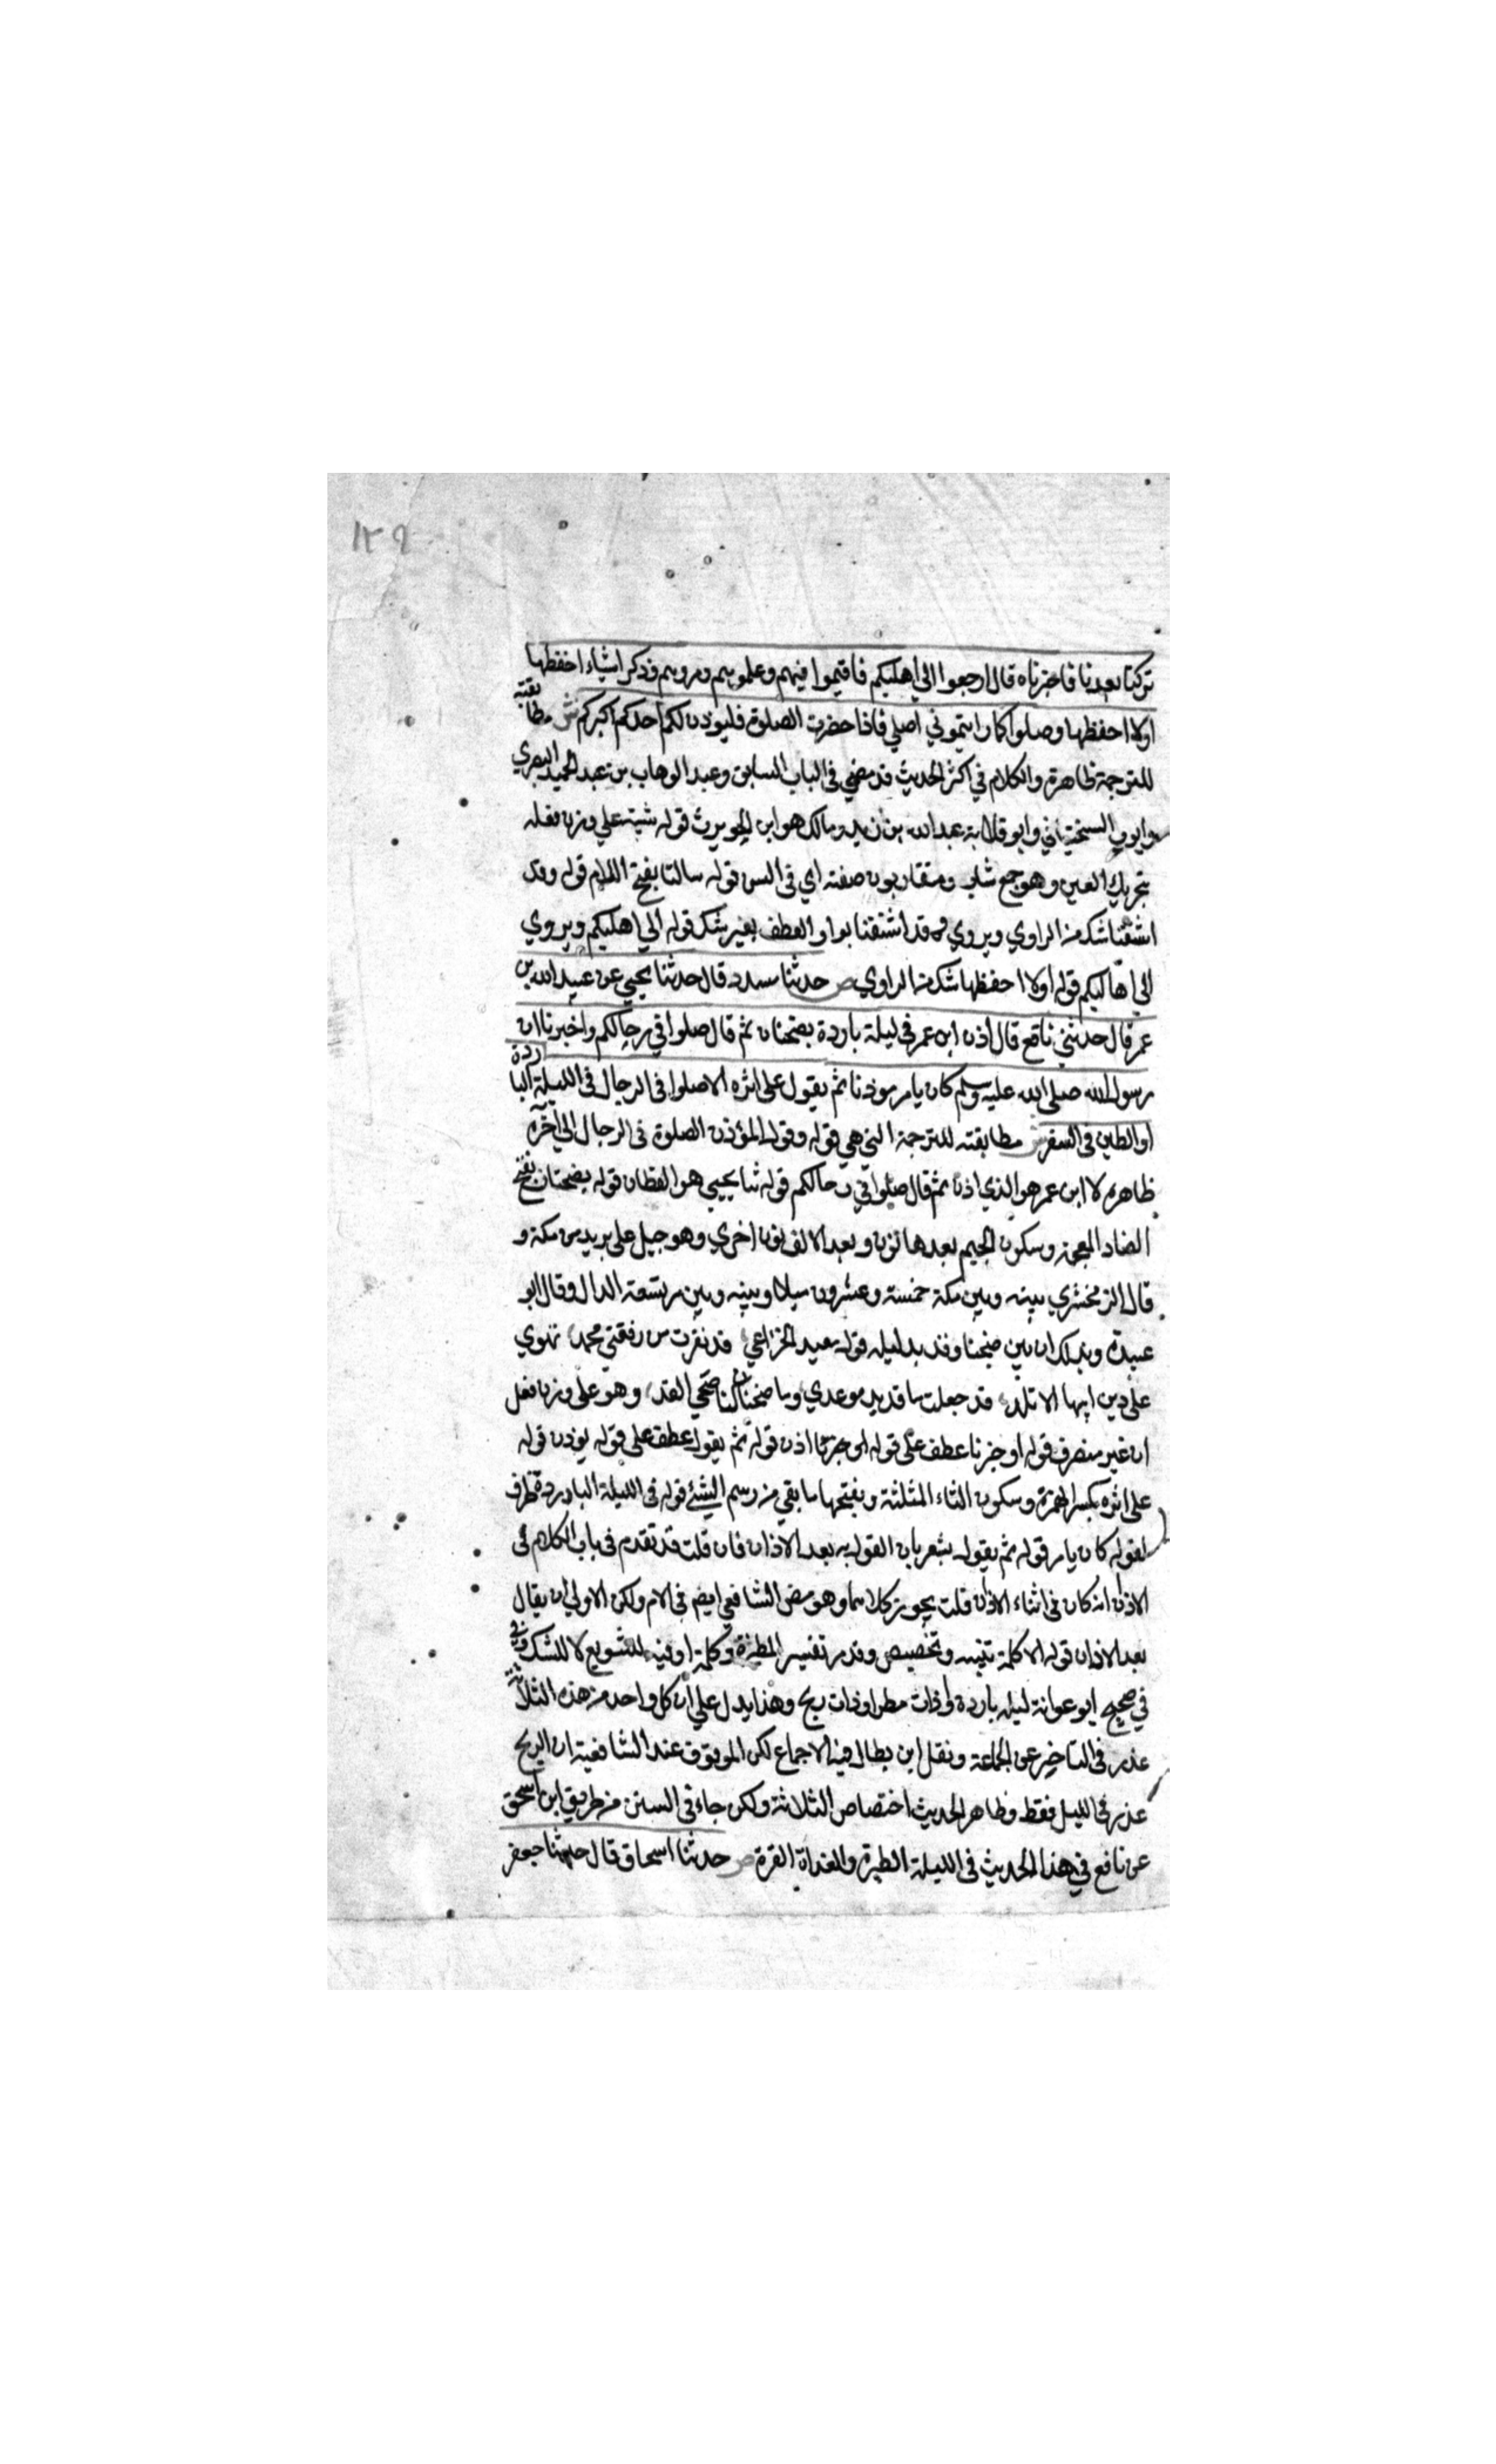 ١٢٩
تركنا بعدنا فاخبرناه قال ارجعوا الي اهليكم فاقيموا فيهم وعلموهم ومروهم وذكر اشياء احفظها
اولا احفظها وصلوا كما رايتموني اصلي فاذا حضرت الصلوة فليوذن لكم احدكم اكبركم ش مطابقته
للترجمة ظاهرة والكلام في اكثر الحديث قد مضي في الباب السابق وعبد الوهاب بن عبد الحميد البصري
وايوب السختياني وابو قلابة عبد الله بن زيد ومالك هو ابن الحويرث قوله شببة علي وزن فعله
بتحريك العين وهو جمع شاب ومتقاربون صفته اي في السن قوله سالنا بفتح اللام قوله وقد
اشتقنا شك من الراوي ويروي وقد اشتقنا بواو العطف بغير شك قوله الي اهليكم ويروي
الي اهاليكم قوله اولا احفظها شك من الراوي ص حدثنا مسدد قال حدثنا يحيي عن عبيد الله بن
عمر قال حدثني نافع قال اذن ابن عمر في ليلة باردة بضجنان ثم قال صلوا في رحالكم واخبرنا ان
رسول الله صلى الله عليه وسلم كان يامر موذنا ثم يقول على اثره الا صلوا في الرحال في الليلة الباردة
او الطين في السفر ش مطابقته للترجمة التي هي قوله وقول المؤذن الصلوة في الرحال الي آخره
ظاهرة لا ابن عمر هو الذي اذن ثم قال صلوا في رحالكم قوله ثنا يحيي هو القطان قوله بضجنان بفتح
الضاد المعجمة وسكون الجيم بعدها نون وبعد الالف نون اخري وهو جبل على بريد من مكة و
قال الزمخشري بينه وبين مكة خمسة وعشرون ميلا وبينه وبين مر تسعة اميال وقال ابو
عبيدة وبذلك ان بين ضجنان وقديد ليلة قوله معبد الخزاعي قد نفرت من رفقتي محمد تهوي
على دين ابيها الاتلد قد جعلت ماقديد موعدي وما ضجنان لنا ضحي الغد وهو على وزن فعل
ان غير منصرف قوله او خبرنا عطف على قوله اذن قوله ثم يقول عطف على قوله يوذن قوله
على اثره بكسر الهمزة وسكون الثاء المثلثة وبفتحها ما بقي من رسم الشئ قوله في الليلة الباردة ظرف
لقوله كان يامر قوله ثم يقول يشعر بان القول به بعد الاذان فان قلت قد تقدم في باب الكلام في
الاذان انه كان في اثناء الاذان قلت يجوز كلاهما وهو نص الشافعي ايضا في الام ولكن الاولي ان يقال
بعد الاذان قوله الا كلمة تنبيه وتحضيض وقد مر تفسير المطيرة وكلمة او فيه للتنويع لا للشك وفي
في صحيح ابو عوانة ليلة باردة او ذات مطر او ذات ريح وهذا يدل علي ان كل واحد من هذه الثلاثة
عذر في التاخير عن الجماعة ونقل ابن بطال فيه الاجماع لكن الموقوف عند الشافعية ان الريح
عذر في الليل فقط وظاهر الحديث اختصاص الثلاثة ولكن جاء في السنن من طريق ابن اسحق
عن نافع في هذا الحديث في الليلة المطيرة والغداة القرة ص حدثنا اسحاق قال حدثنا جعفر